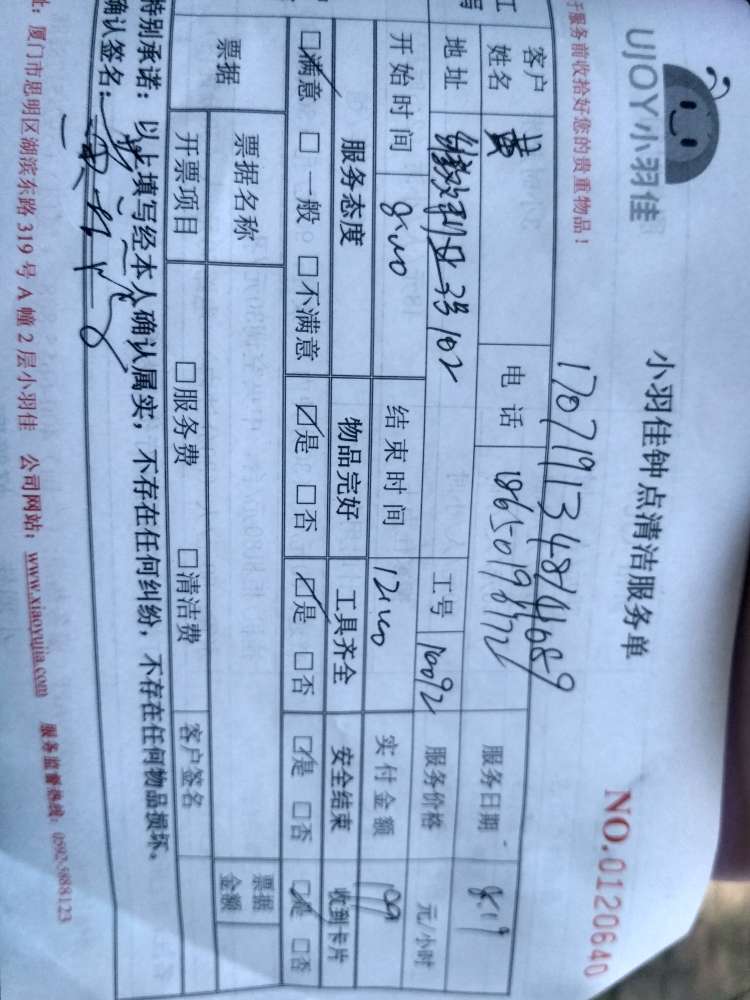 UJOY小羽佳
小羽佳钟点清洁服务单
NO.0120640
于服务前收拾好您的贵重物品！
17071913487441689
客户姓名 黄 电话 18650198172 服务日期 8.19
地址 3号102 工号 10092 服务价格 元/小时
开始时间 8:00 结束时间 12:00 实付金额 199
服务态度 物品完好 工具齐全 安全结束 收到卡片
☑满意 □一般 □不满意 ☑是 □否 ☑是 □否 ☑是 □否 ☑是 □否
票据 票据名称 票据金额
开票项目 □服务费 □清洁费 客户签名
特别承诺：以上填写经本人确认属实，不存在任何纠纷，不存在任何物品损坏。
确认签名：
址：厦门市思明区湖滨东路319号A幢2层小羽佳 公司网站：www.xiaoyujia.com 服务监督热线：0592-5888123